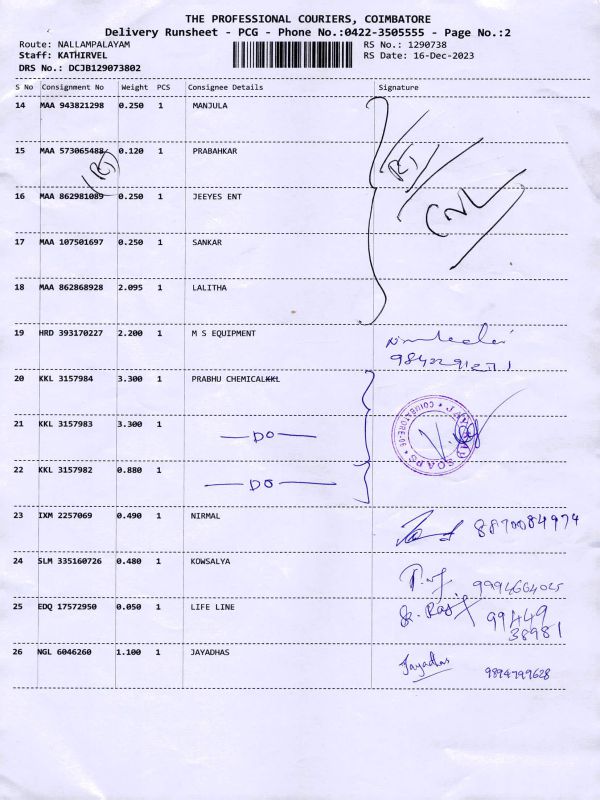 THE PROFESSIONAL COURIERS, COIMBATORE
Delivery Runsheet - PCG - Phone No.:0422-3505555 - Page No.:2
Route: NALLAMPALAYAM RS No.: 1290738
Staff: KATHIRVEL RS Date: 16-Dec-2023
DRS No.: DCJB129073802
S No Consignment No Weight PCS Consignee Details Signature
14 MAA 943821298 0.250 1 MANJULA
15 MAA 573065488 0.120 1 PRABAHKAR
16 MAA 862981089 0.250 1 JEEYES ENT
17 MAA 107501697 0.250 1 SANKAR
18 MAA 862868928 2.095 1 LALITHA
19 HRD 393170227 2.200 1 M S EQUIPMENT
20 KKL 3157984 3.300 1 PRABHU CHEMICALKKL
21 KKL 3157983 3.300 1 DO
22 KKL 3157982 0.880 1 DO
SOAPS COIMBATORE
23 IXM 2257069 0.490 1 NIRMAL 8870084974
24 SLM 335160726 0.480 1 KOWSALYA
25 EDQ 17572950 0.050 1 LIFE LINE 99449
38981
26 NGL 6046260 1.100 1 JAYADHAS Jayadhas 9894799628